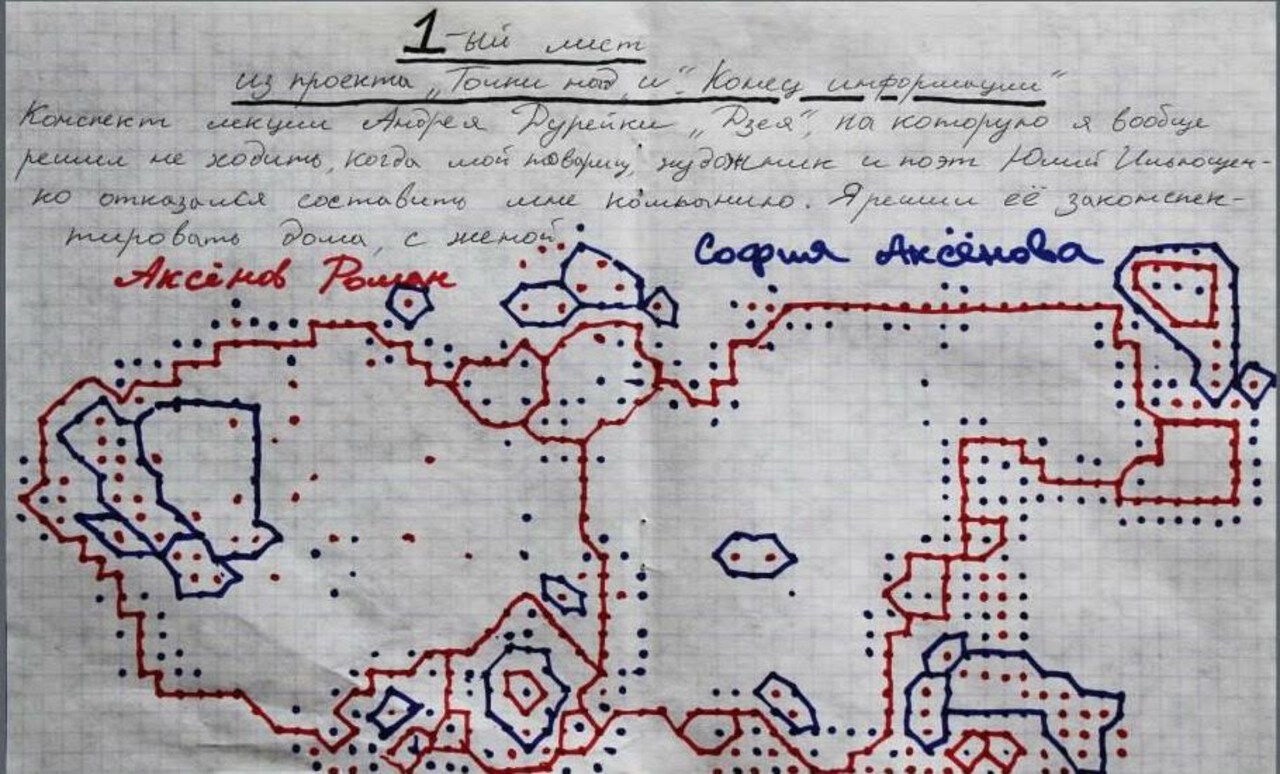 1-ый лист
из проекта „Точки над „и“. Конец информации“
Конспект лекции Андрея Дурейки „Дзея“, на которую я вообще
решил не ходить, когда мой товарищ, художник и поэт Юлий Ильющен-
ко отказался составить мне компанию. Я решил её законспек-
тировать дома, с женой
Аксёнов Роман
София Аксёнова